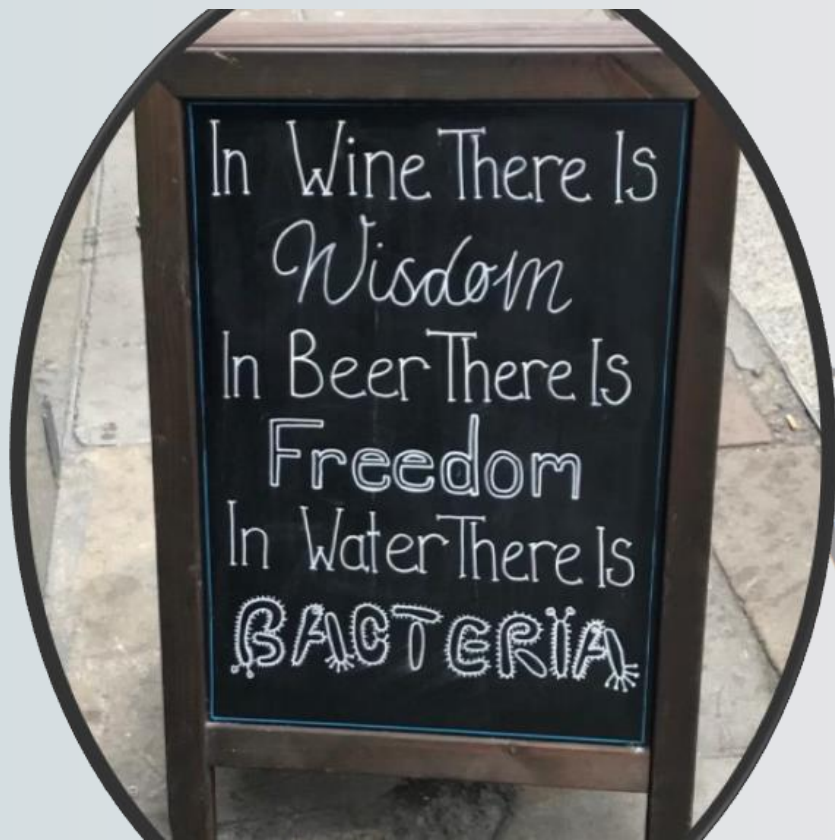 In Wine There Is
Wisdom
In Beer There Is
Freedom
In Water There Is
BACTERIA